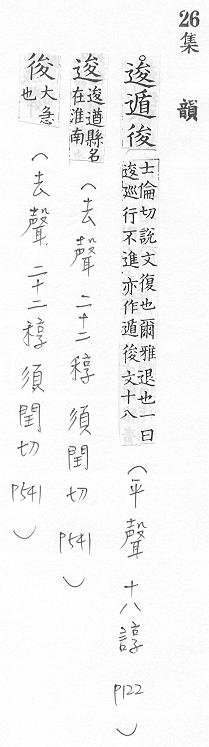 26 集 韻
逡遁後 士倫切說文復也爾雅退也一曰
逡巡行不進亦作遁後文十八
(平聲 十八諄 P122)
逡 逡遒縣名
在淮南
(去聲 二十二稕 須閏切 P541)
後 大急
也
(去聲 二十二稕 須閏切 P541)